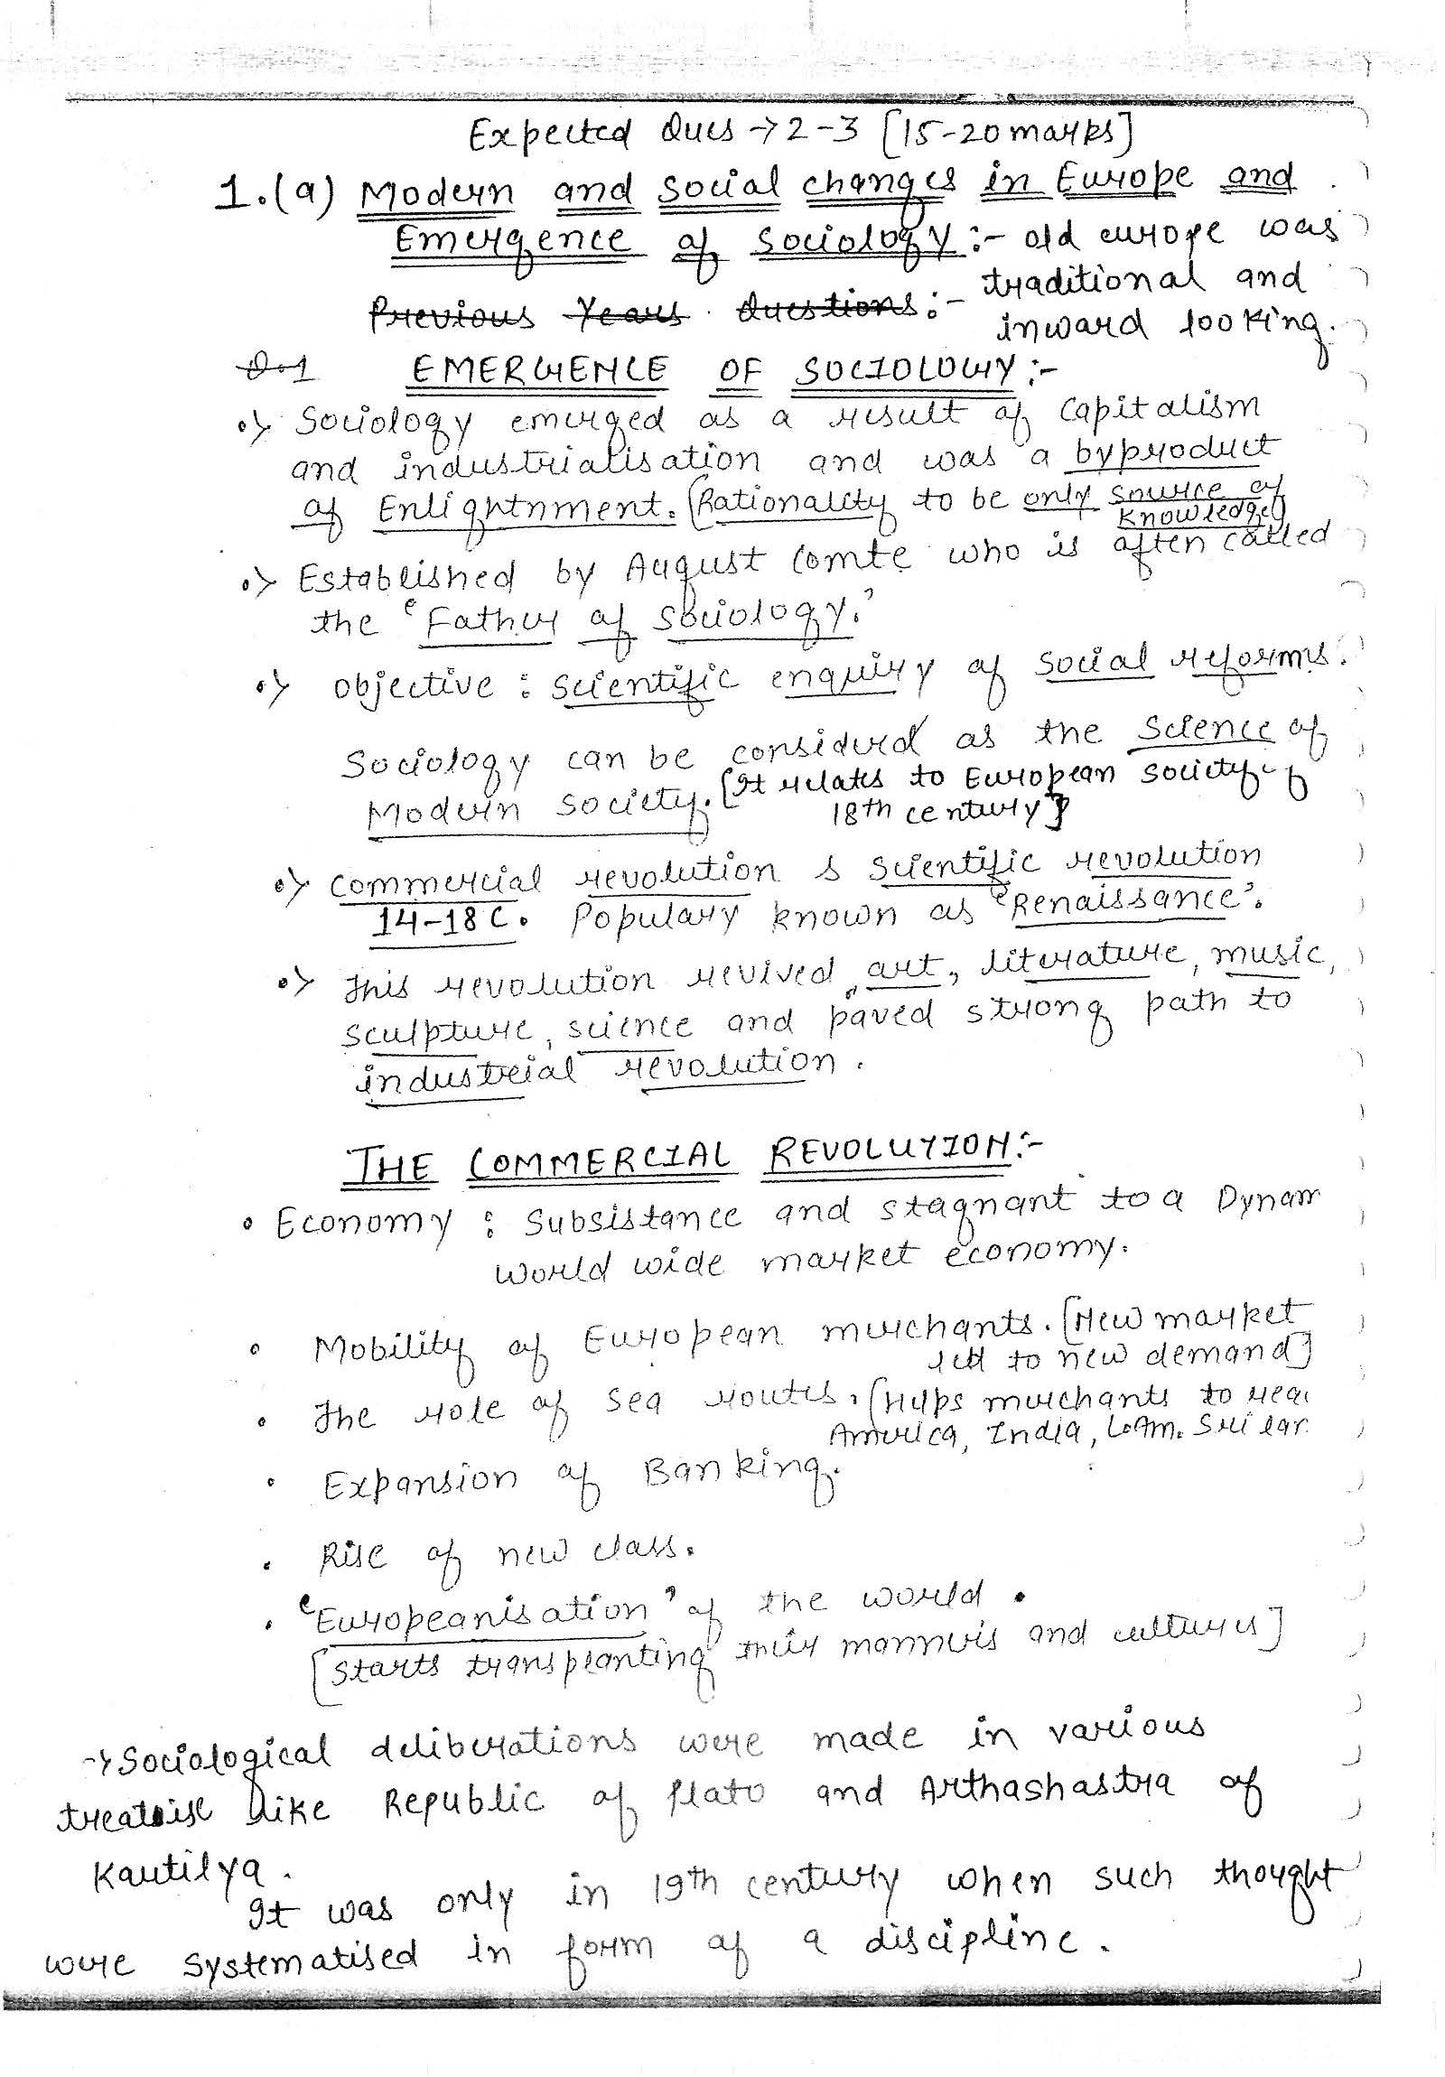 Expected Ques → 2-3 [15-20 marks]
1.(a) Modern and social changes in Europe and
Emergence of Sociology :- old europe was
Previous Years Questions :- traditional and
inward looking.
Q.1 EMERGENCE OF SOCIOLOGY :-
Sociology emerged as a result of capitalism
and industrialisation and was a byproduct
of Enlightnment. [Rationality to be only source of
knowledge]
Established by August Comte who is often called
the 'Father of sociology.'
Objective : scientific enquiry of social reforms.
Sociology can be considerd as the science of
Modern society. [It relates to European society of
18th century]
Commercial revolution & scientific revolution
14-18 C. Populary known as 'Renaissance'.
This revolution revived art, literature, music,
sculpture, science and paved strong path to
industrial revolution.
THE COMMERCIAL REVOLUTION :-
Economy : Subsistance and stagnant to a Dynam
world wide market economy.
Mobility of European merchants. [New market
led to new demand]
The role of sea routes. [Helps merchants to rea
America, India, L.Am. Sri lan
Expansion of Banking.
Rise of new class.
'Europeanisation' of the world.
[Starts transplanting their manners and cultures]
→ Sociological deliberations were made in various
treatise like Republic of Plato and Arthashastra of
Kautilya.
It was only in 19th century when such thought
were systematised in form of a discipline.